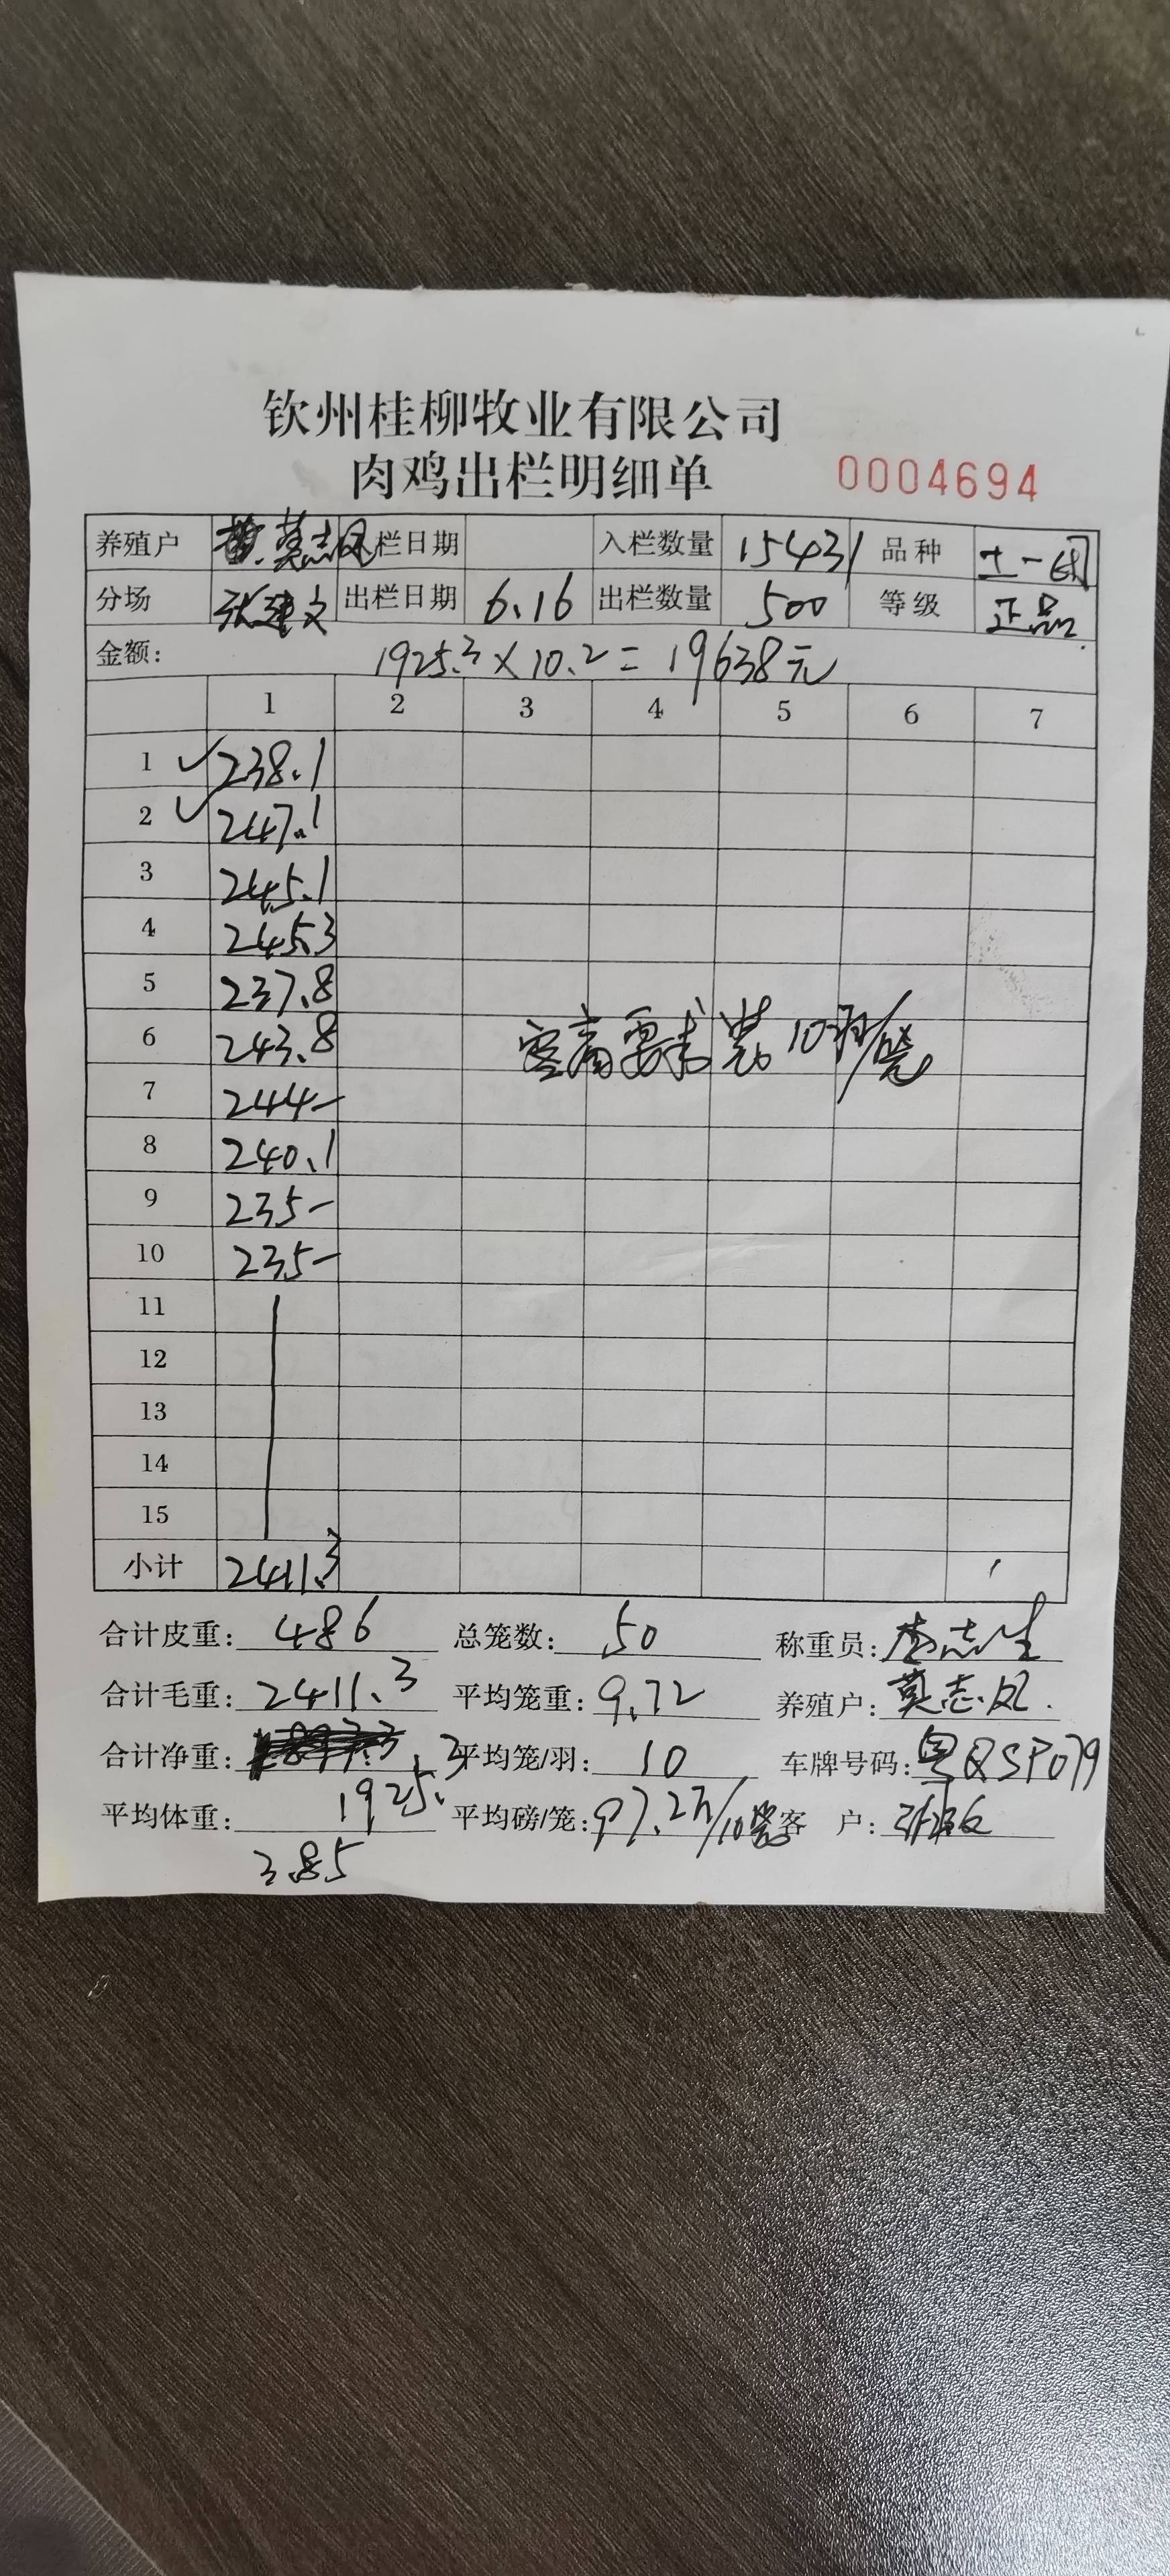 钦州桂柳牧业有限公司
肉鸡出栏明细单 0004694
养殖户 莫志凤 栏日期 入栏数量 15431 品种 土一
分场 张建文 出栏日期 6.16 出栏数量 500 等级 正品
金额: 1925.3×10.2=19638元
1 2 3 4 5 6 7
1 238.1
2 247.1
3 245.1
4 245.3
5 237.8
6 243.8 客商要求装10羽/笼
7 244-
8 240.1
9 235-
10 235-
11
12
13
14
15
小计 2411.3
合计皮重: 486 总笼数: 50 称重员: 李志生
合计毛重: 2411.3 平均笼重: 9.72 养殖户: 莫志凤.
合计净重: 1925.3 平均笼/羽: 10 车牌号码: 粤QSP079
平均体重: 3.85 平均磅/笼: 97.2斤/10笼 客 户: